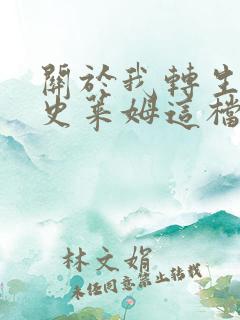 關於我轉生
史萊姆這檔
林文娟
未经同意禁止转载